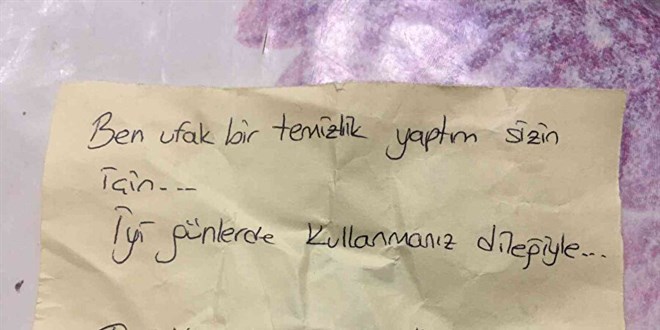 Ben ufak bir temizlik yaptım sizin
için...
İyi günlerde kullanmanız dileğiyle...